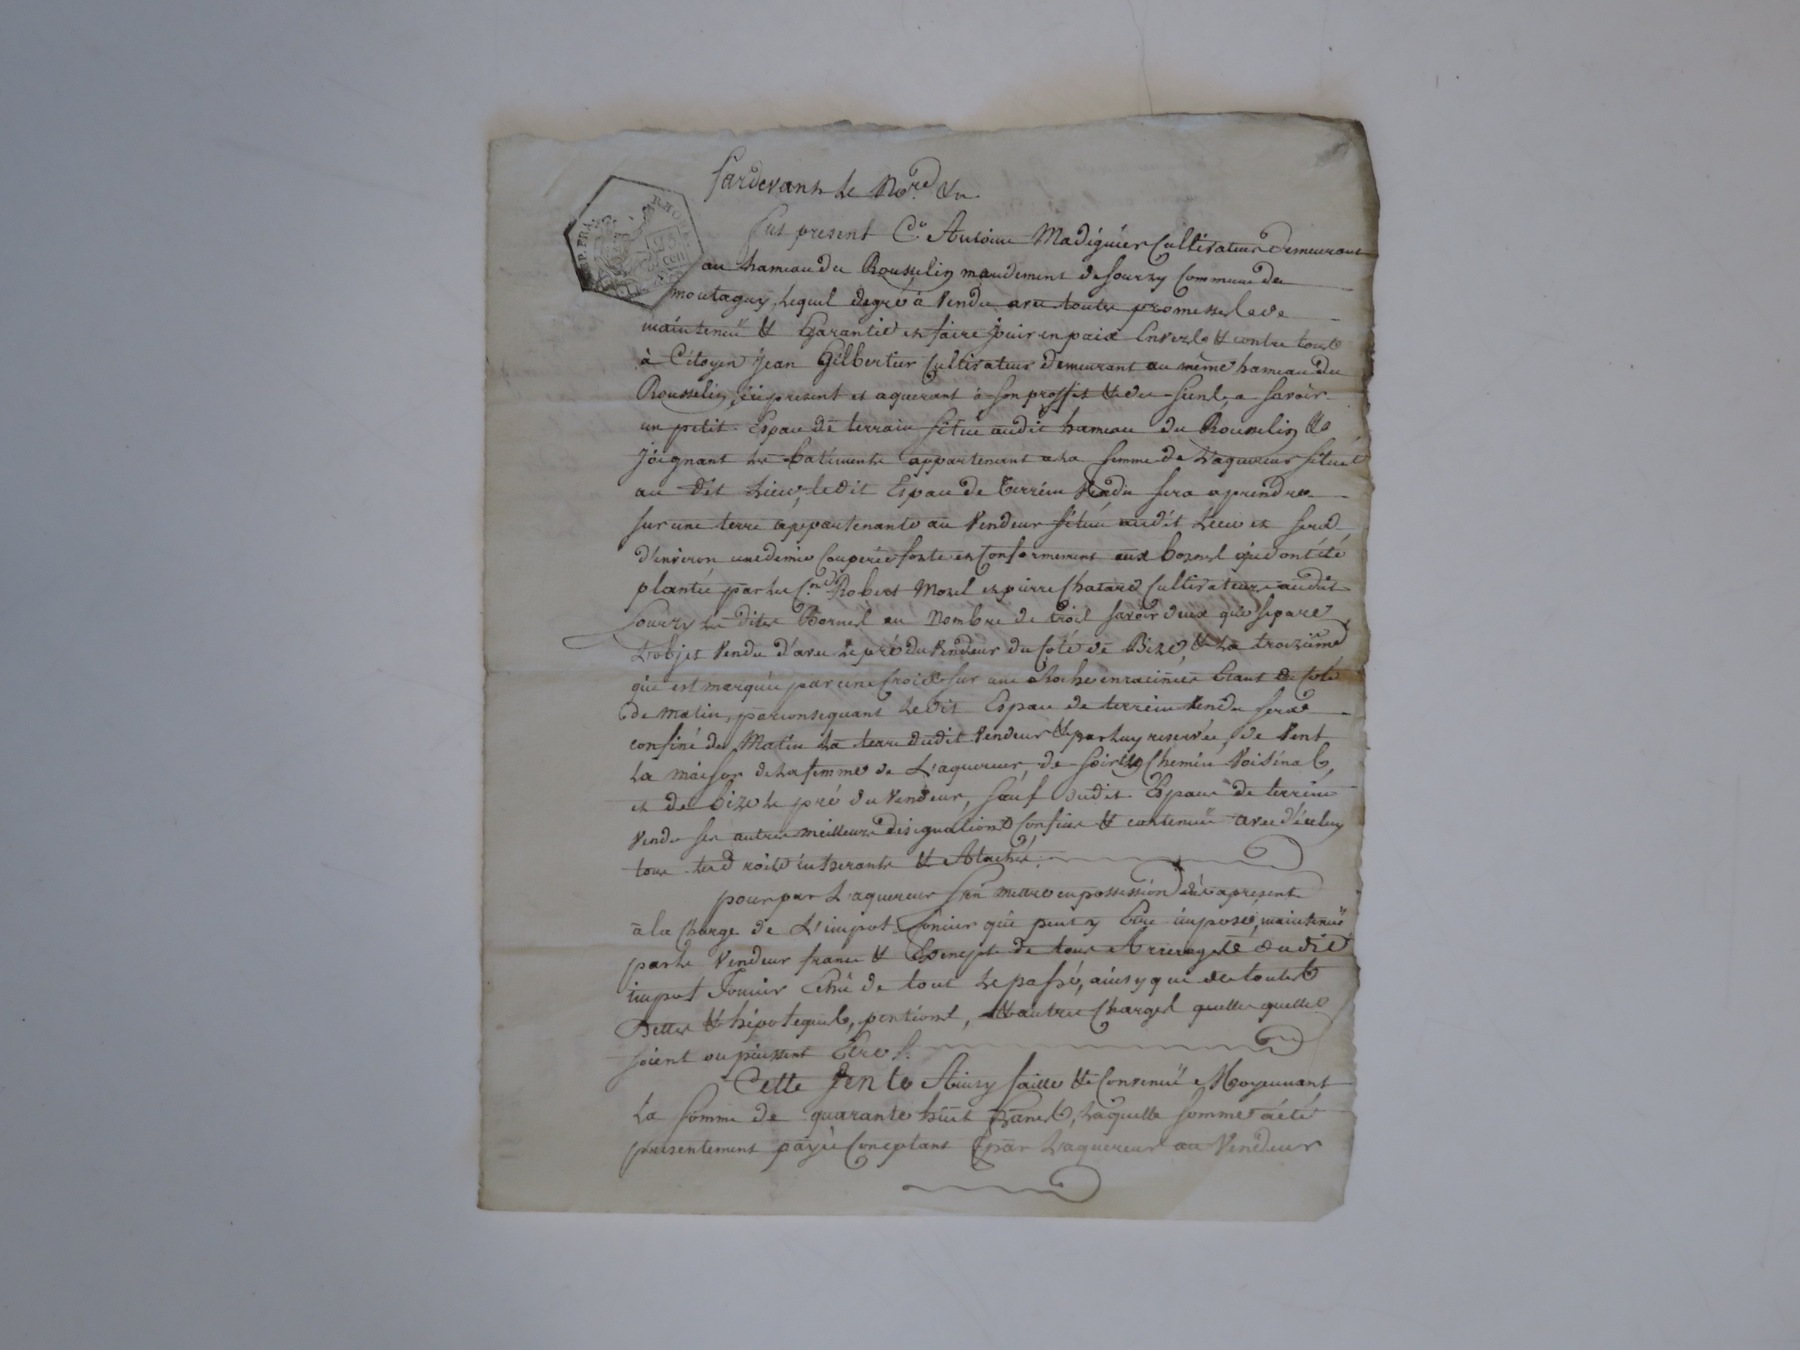 Pardevant Le No.re &n
REP. FRA. RHONE 75 cen
Fut present C.n Antoine Madiguier Cultivateur demeurant
au hameau du Rousselin mandement de Sourzy Commune de
montagny, Lequel degré à Vendu avec toutes promesses de
maintenuë & Garantie et faire jouir en paix Envers & contre tous
à Citoyen Jean Gilbertier Cultivateur demeurant au même hameau du
Rousselin, ici present et aquerant à son proffit & des siens, a savoir
un petit Espace de terrain situé audit hameau du Rousselin &
joignant les batiments appartenant a la femme de L'aquereur situés
au dit Lieu, ledit Espace de terrein Vendu sera a prendre
sur une terre appartenante au Vendeur située audit Lieu et sera
d'environ une demie Couperée forte et Conformement aux bornes qui ont été
plantée par les C.ns Robert Morel et pierre Chatard Cultivateurs audit
Sourzy les dites Bornes au Nombre de trois savoir deux qui separe
L'objet Vendu d'avec le pré du Vendeur du Coté de Bize, & La troizième
qui est marquée par une Croix sur une Roche enracinée Etant du Coté
de Matin, par consequant Ledit Espace de terrein Vendu sera
confiné de Matin La terre dudit Vendeur & par luy reservée, de Vent
La maison de La femme de L'aquereur, de Soir Chemin Voisinal,
et de bize le pré du Vendeur, sauf dudit Espace de terrein
Vendu ses autres meilleurs designations Confins & contenuë avec d'iceluy
tous les droits inherants & Atachés.
pour par L'aquereur s'en mettre en possession dès apresent
à la Charge de L'impot foncier qui peut y Etre imposé, maintenuë
par le Vendeur franc & Exempt de tous Arrerages dudit
impot foncier Echu de tout Le passé, ainsy que de toutes
Dettes & hipoteques, pentions, & autres Charges quelles quelles
soient ou puissent Etres.
Cette Vente Ainsy faitte & Convenuë Moyennant
La somme de quarante huit francs, Laquelle somme a été
presentement payée Comptant par L'aquereur au Vendeur